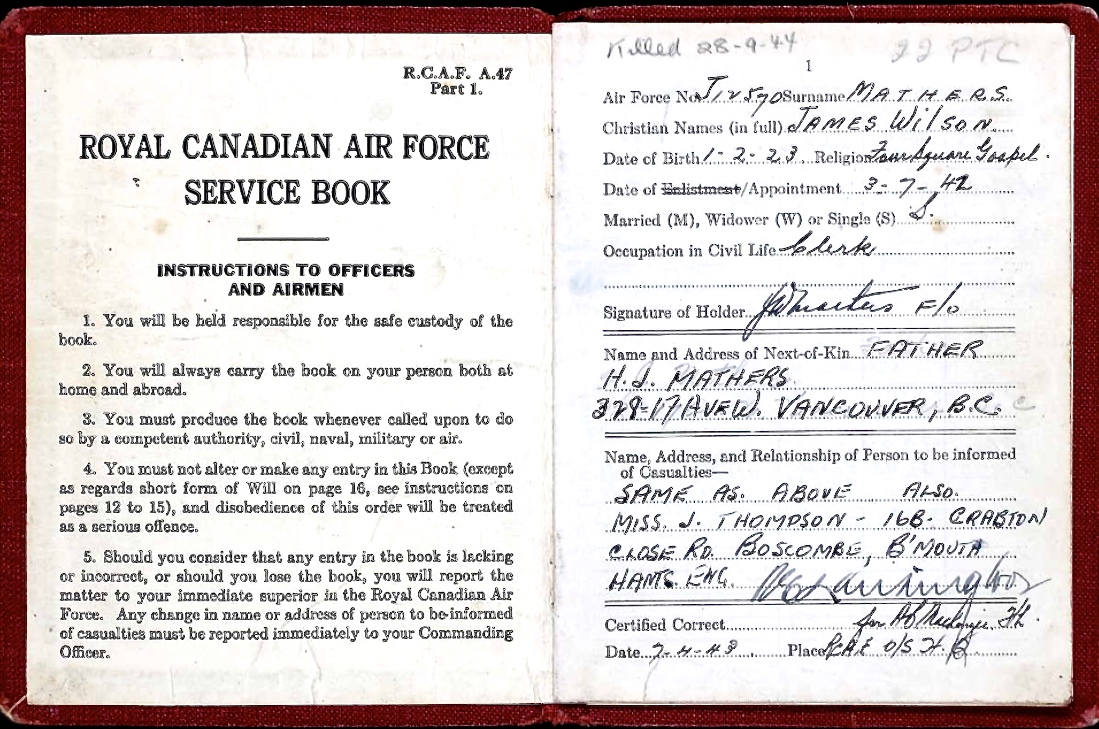 R.C.A.F. A.47
Part 1.
ROYAL CANADIAN AIR FORCE
SERVICE BOOK
INSTRUCTIONS TO OFFICERS
AND AIRMEN
1. You will be held responsible for the safe custody of the
book.
2. You will always carry the book on your person both at
home and abroad.
3. You must produce the book whenever called upon to do
so by a competent authority, civil, naval, military or air.
4. You must not alter or make any entry in this Book (except
as regards short form of Will on page 16, see instructions on
pages 12 to 15), and disobedience of this order will be treated
as a serious offence.
5. Should you consider that any entry in the book is lacking
or incorrect, or should you lose the book, you will report the
matter to your immediate superior in the Royal Canadian Air
Force. Any change in name or address of person to be informed
of casualties must be reported immediately to your Commanding
Officer.
Killed 28-9-44 22 PTC
1
Air Force No. J12570 Surname MATHERS
Christian Names (in full) JAMES WILSON
Date of Birth 1-2-23 Religion FourSquare Gospel.
Date of Enlistment/Appointment 3-7-42
Married (M), Widower (W) or Single (S) S.
Occupation in Civil Life Clerk
Signature of Holder JWMathers F/O
Name and Address of Next-of-Kin FATHER
H.J. MATHERS
328-17 AVE W. VANCOUVER, B.C.
Name, Address, and Relationship of Person to be informed
of Casualties—
SAME AS. ABOVE ALSO.
MISS. J. THOMPSON - 16B. CRABTON
CLOSE RD. BOSCOMBE, B'MOUTH
HANTS. ENG.
Certified Correct for
Date 7-4-43 Place RCAF O/S H.Q.